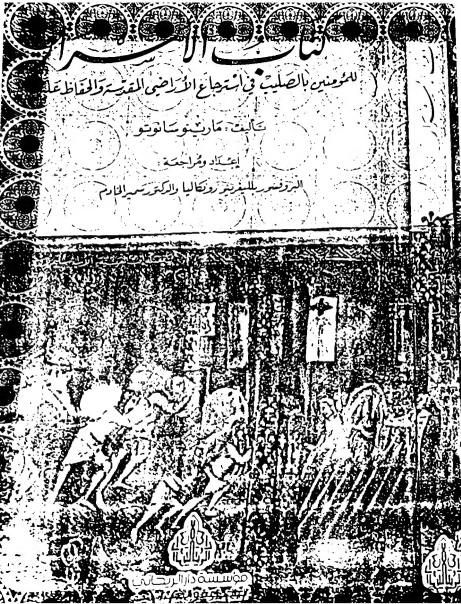 كتاب الأسرار
للمؤمنين بالصليب في استرجاع الأراضي المقدسة والحفاظ عليها
تأليف: مارينو سانوتو
إعداد ومراجعة
البروفسور بلليغرينو رونكاليا والدكتور سمير الخادم
مؤسسة دار الريحاني